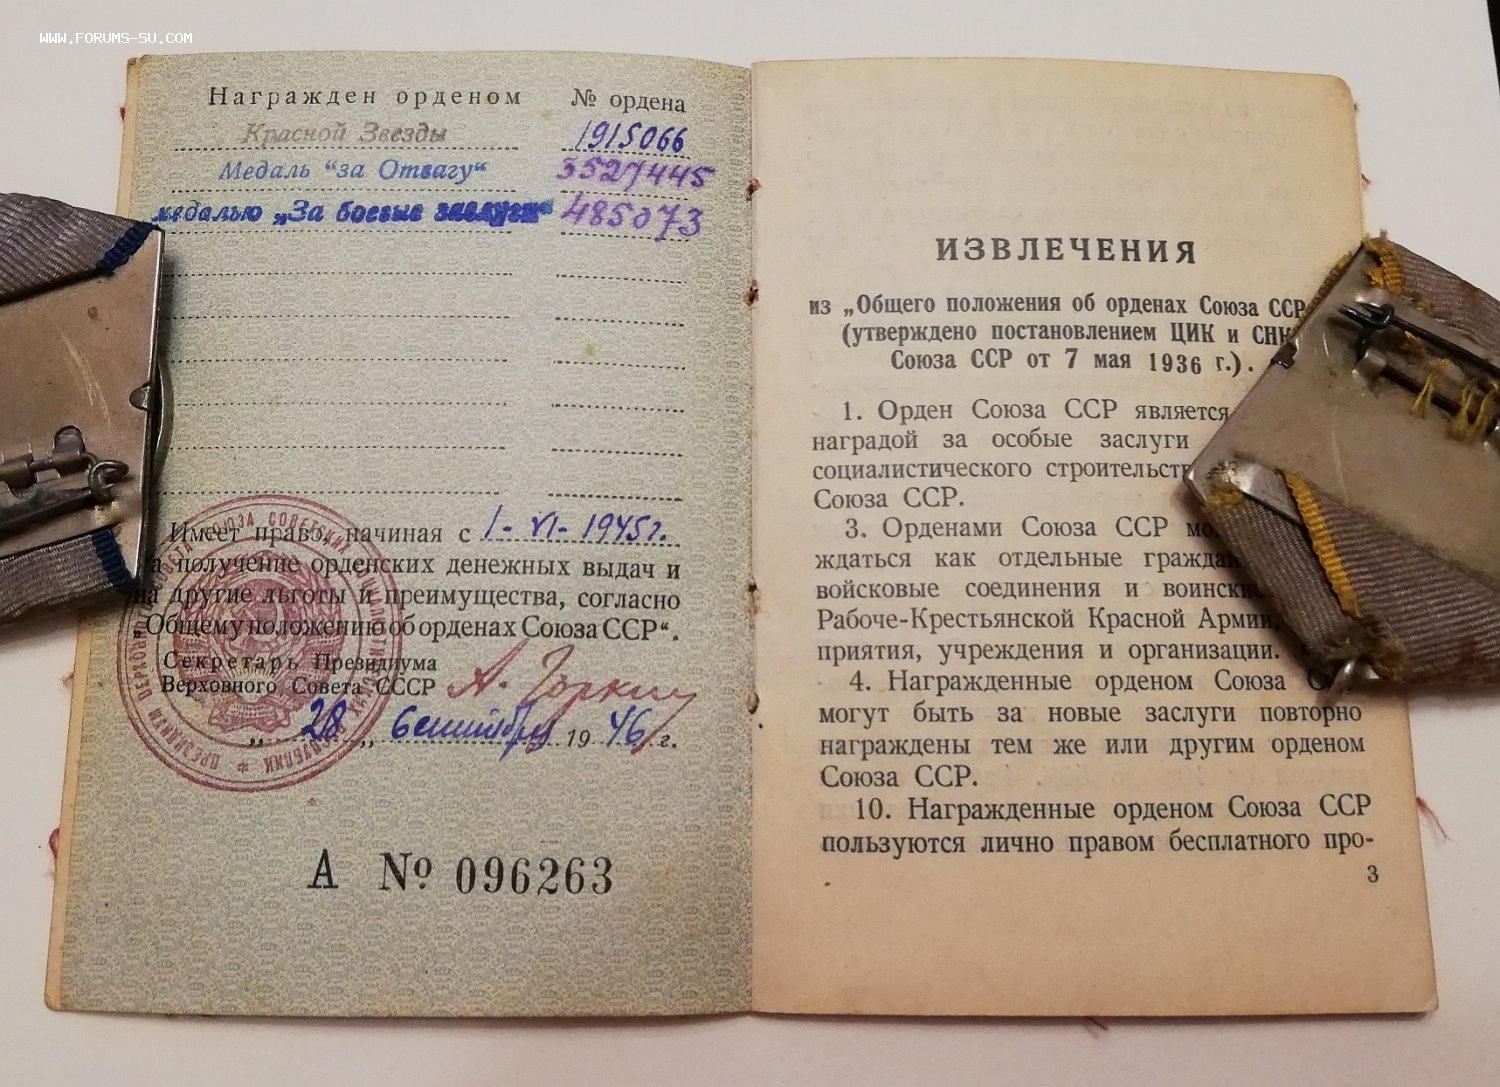 WWW.FORUMS-SU.COM
Награжден орденом № ордена
Красной Звезды 1915066
Медаль "за Отвагу" 3527445
медалью „За боевые заслуги" 485073
Имеет право, начиная с 1-VI-1945г.
на получение орденских денежных выдач и
на другие льготы и преимущества, согласно
„Общему положению об орденах Союза ССР".
Секретарь Президиума
Верховного Совета СССР А. Горкин
„28" сентября 1946 г.
А № 096263
ИЗВЛЕЧЕНИЯ
из „Общего положения об орденах Союза ССР
(утверждено постановлением ЦИК и СНК
Союза ССР от 7 мая 1936 г.).
1. Орден Союза ССР является
наградой за особые заслуги
социалистического строительств
Союза ССР.
3. Орденами Союза ССР мо
ждаться как отдельные граждан
войсковые соединения и воински
Рабоче-Крестьянской Красной Армии,
приятия, учреждения и организации.
4. Награжденные орденом Союза С
могут быть за новые заслуги повторно
награждены тем же или другим орденом
Союза ССР.
10. Награжденные орденом Союза ССР
пользуются лично правом бесплатного про-
3